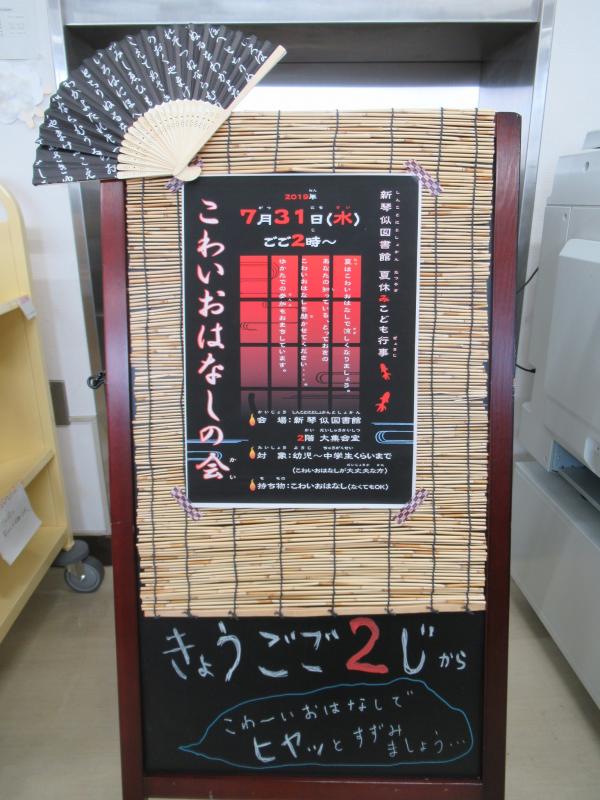 新琴似図書館 夏休みこども行事
2019年
7月31日(水)
ごご2時～
こわいおはなしの会
夏はこわいおはなしで涼しくなりましょう。
あなたの知っている、とっておきの
こわいおはなしを聞かせてください……
ゆかたでの参加もおまちしています。
会場：新琴似図書館
2階 大集会室
対象：幼児～中学生くらいまで
(こわいおはなしが大丈夫な方)
持ち物：こわいおはなし(なくてもOK)
きょうごご2じから
こわ～いおはなしで
ヒヤッとすずみ
ましょう…